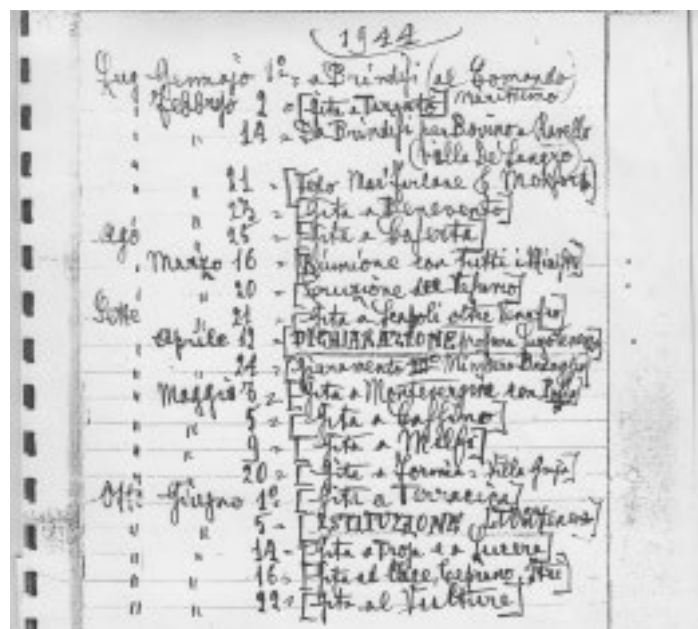 1944
Lug Gennajo 1º = a Brindisi (al Comando
Marittimo)
" Febbrajo 2 = [Gita a Taranto]
" " 14 = Da Brindisi per Bovino a Ravello
(Villa De Sangro)
" " 21 = [Vedo MacFarlane
" " 23 = [Gita a Benevento]
Ago " 25 = [Gita a Caserta]
" Marzo 16 = [Riunione con tutti i Ministri]
" " 20 = [Eruzione del Vesuvio]
Sette " 21 = [Gita a Scapoli oltre Venafro]
Aprile 12 = [DICHIARAZIONE
" " 24 = [Giuramento Ministero Badoglio]
" Maggio 3 = [Gita a Montevergine con
" " 5 = [Gita a Cassino]
" " 9 = [Gita a Melfi]
" 20 = [Gita a Formia = Villa
Ott Giugno 1º = [Gita a Terracina]
" " 5 = [ISTITUZIONE
" " 14 = [Gita a Troja e a Lucera]
" " 16 = [Gita al Ceprano, Itri]
" " 22 = [Gita al Vulture]